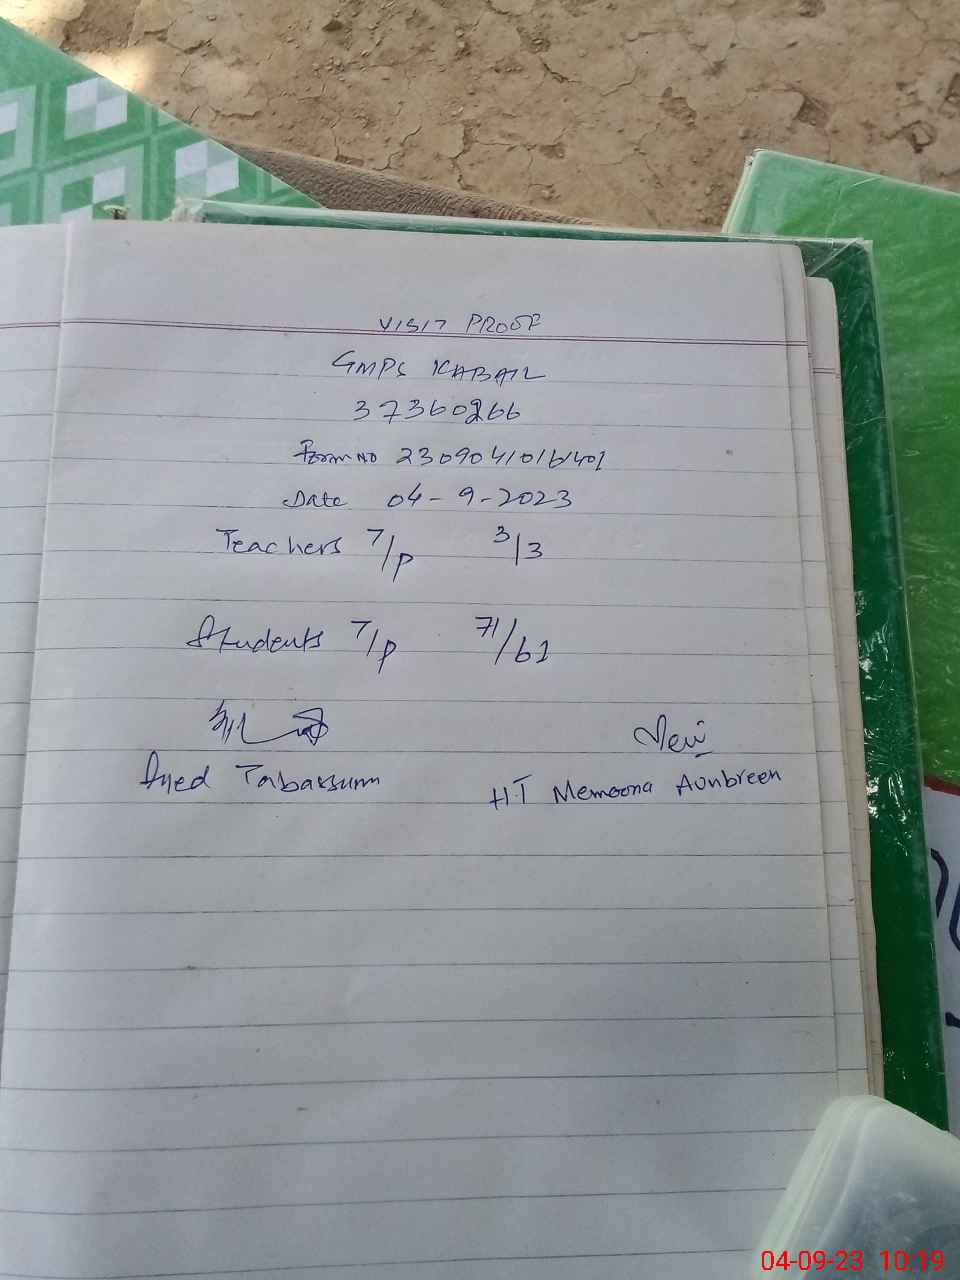 VISIT PROOF
GMPS KABAIL
37360266
Form No 23090410161401
Date 04-9-2023
Teachers T/P 3/3
Students T/P 71/61
Syed Tabassum
H.T Memoona Aunbreen
04-09-23 10:19